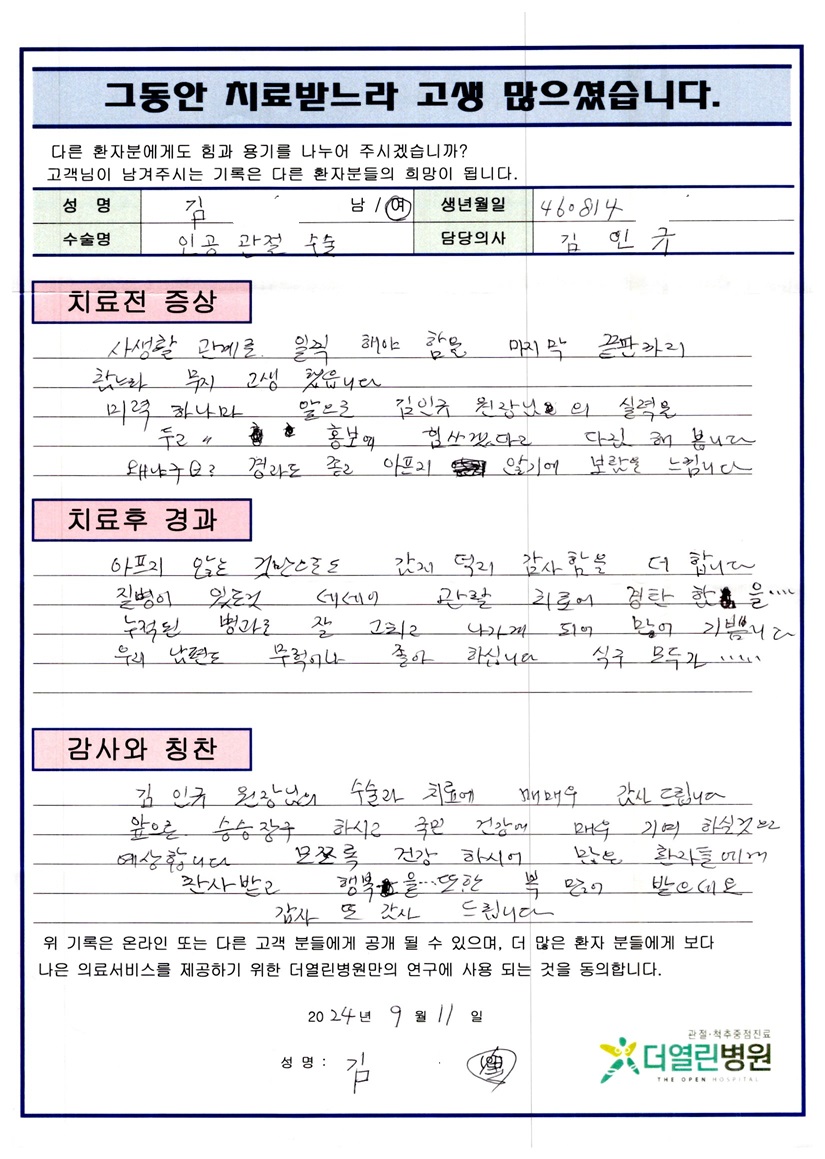 그동안 치료받느라 고생 많으셨습니다.
다른 환자분에게도 힘과 용기를 나누어 주시겠습니까?
고객님이 남겨주시는 기록은 다른 환자분들의 희망이 됩니다.
성 명 김 남 / 여 생년월일 460814
수술명 인공 관절 수술 담당의사 김 인 규
치료전 증상
사생활 관계로. 일찍 해야 함을 마지막 끝판까지
참느라 무지 고생 했읍니다
미력 하나마 앞으로 김인규 원장님 의 실력을
두고 〃 홍보에 힘쓰겠다고 다짐 해 봅니다
왜냐구요? 경과도 좋고 아프지 않기에 보람을 느낍니다
치료후 경과
아프지 않는 것만으로도 값지 덕지 감사함을 더 합니다
질병이 있든것 세세이 관찰 치료에 경탄 한 을....
누적된 병과로 잘 고치고 나가게 되어 많이 기쁨니다
우리 남편도 무척이나 좋아 하십니다 식구 모두가 .....
감사와 칭찬
김 인규 원장님의 수술과 치료에 매매우 감사 드립니다
앞으론 승승장구 하시고 국민 건강에 매우 기여 하실것으로
예상합니다 모쪼록 건강 하시어 많은 환자들에게
찬사받고 행복 을...또한 복 많이 받으세요
감사 또 감사 드립니다
위 기록은 온라인 또는 다른 고객 분들에게 공개 될 수 있으며, 더 많은 환자 분들에게 보다
나은 의료서비스를 제공하기 위한 더열린병원만의 연구에 사용 되는 것을 동의합니다.
2024년 9 월 11 일
성 명 : 김
관절·척추중점진료
더열린병원
THE OPEN HOSPITAL